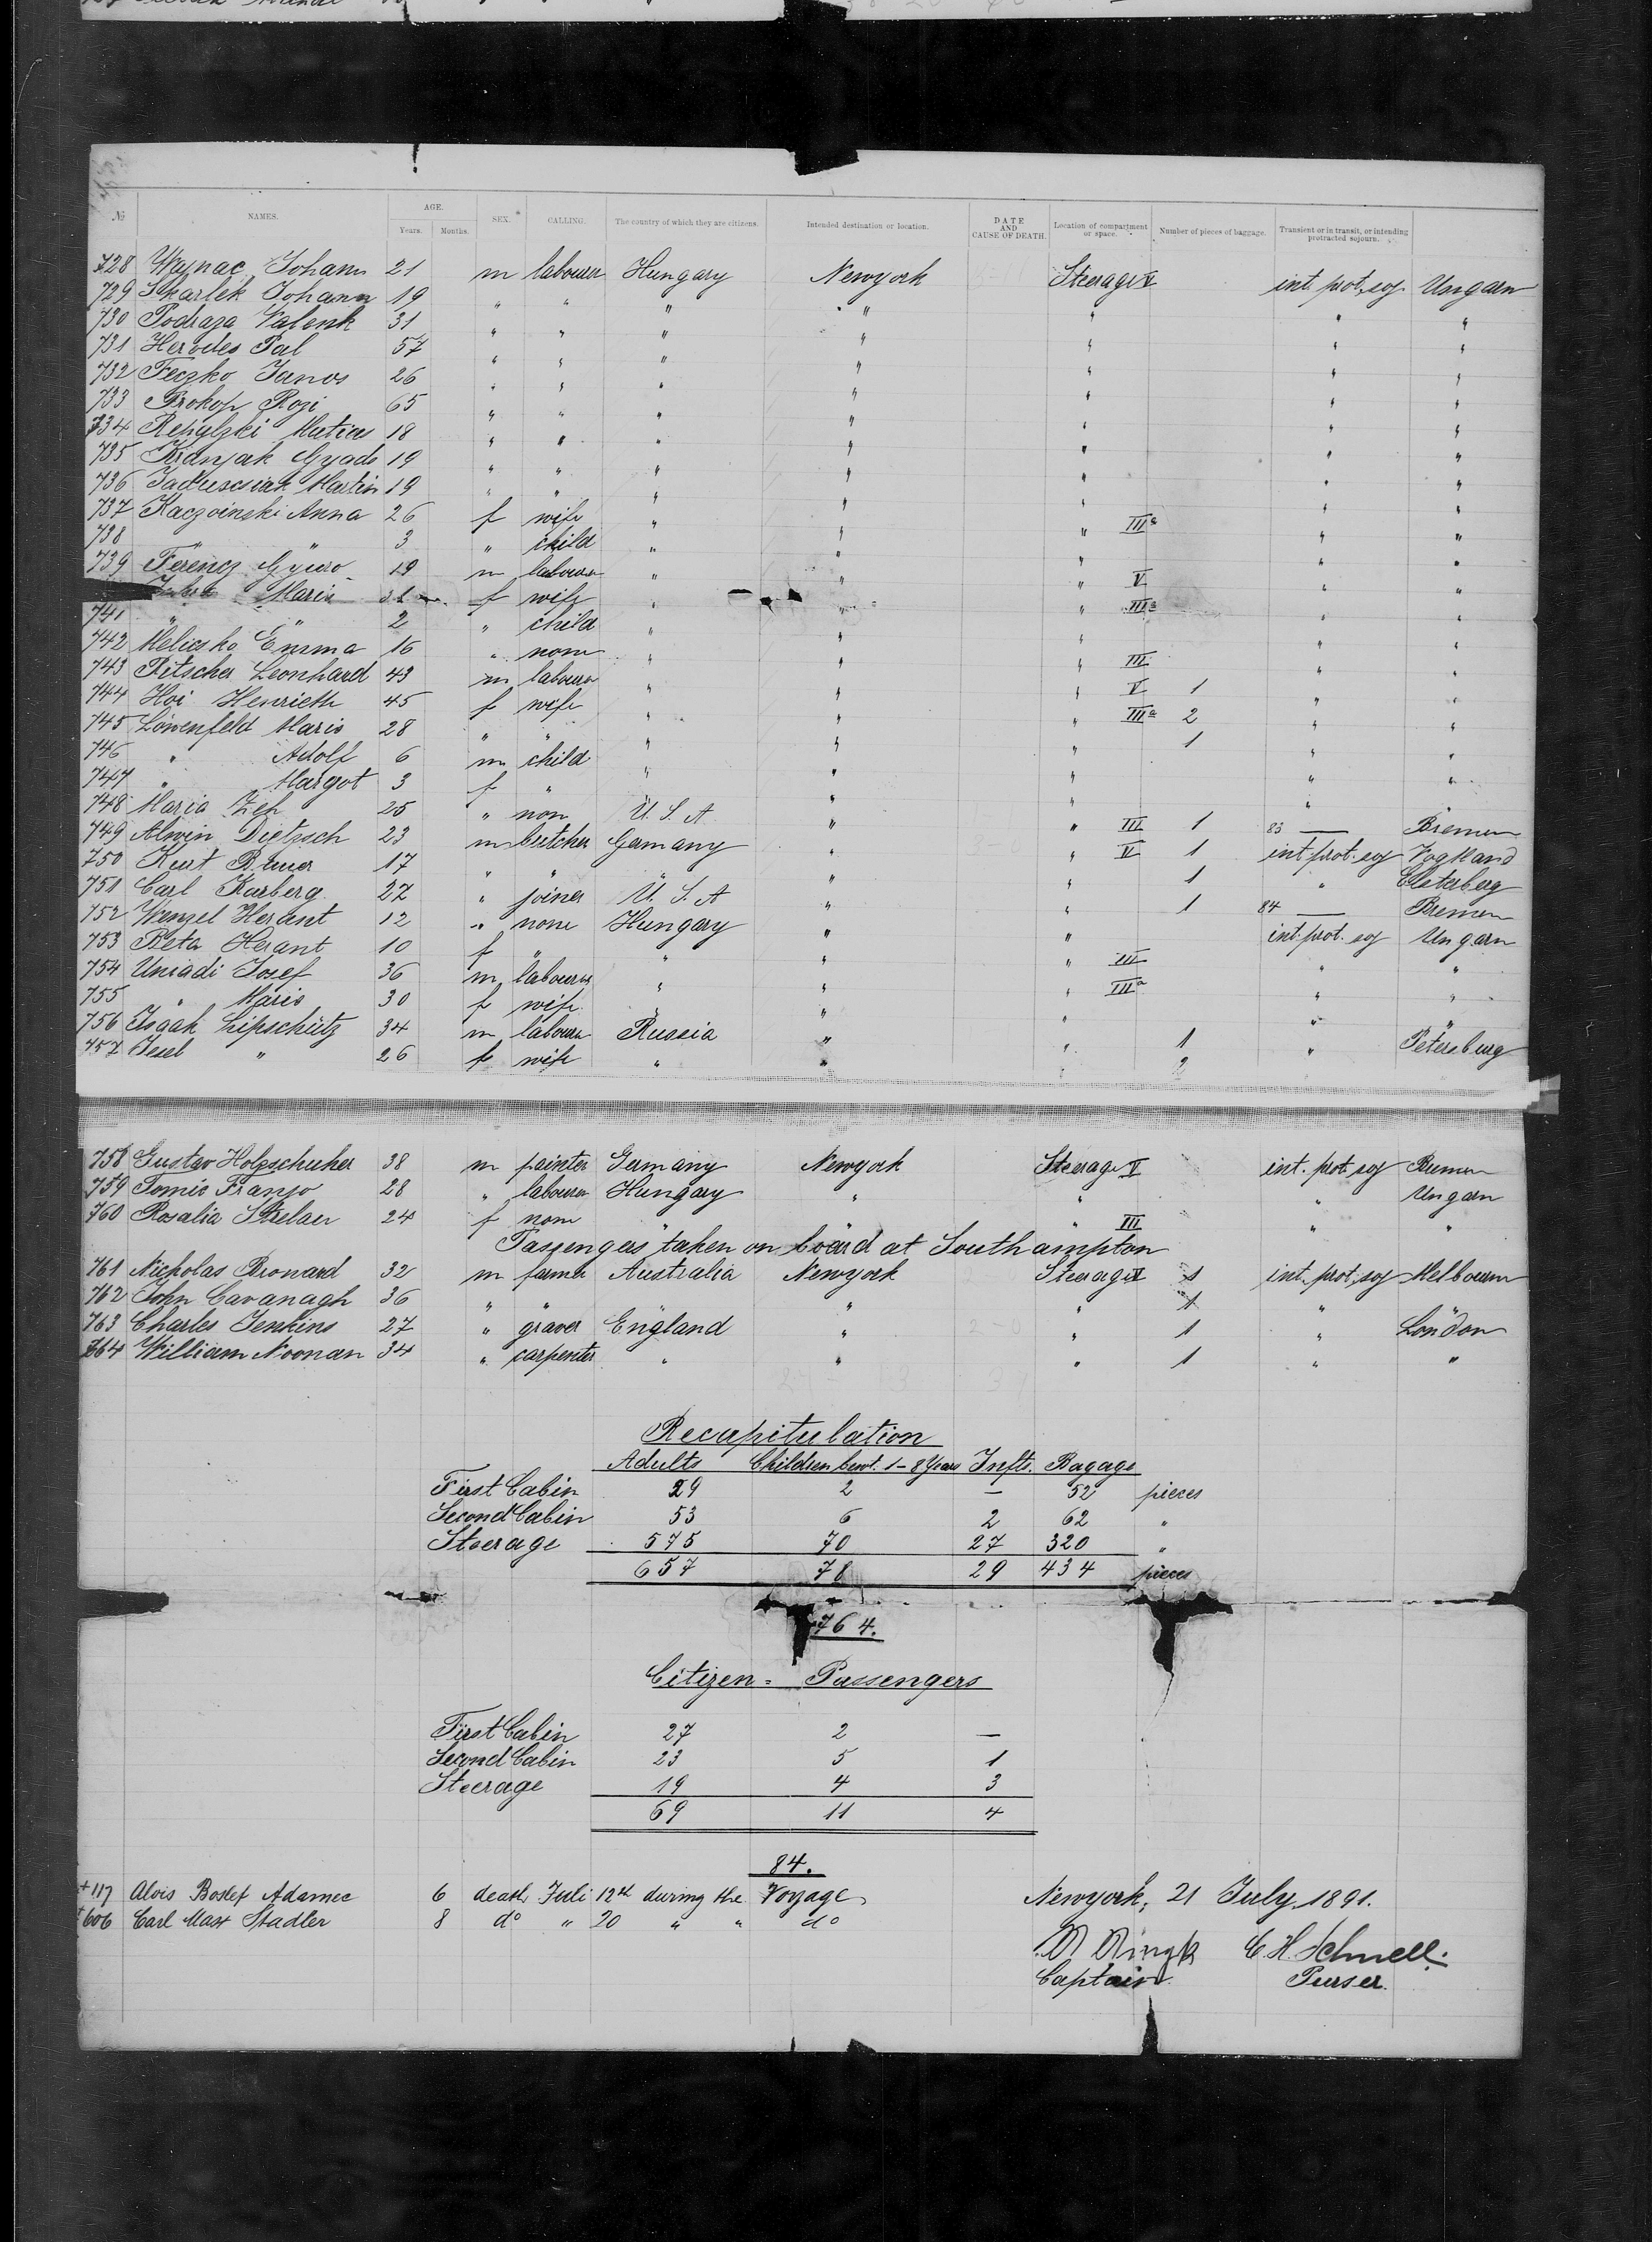 № NAMES. AGE. Years. Months. SEX. CALLING. The country of which they are citizens. Intended destination or location. DATE AND CAUSE OF DEATH. Location of compartment or space. Number of pieces of baggage. Transient or in transit, or intending protracted sojourn.
728 Wynac Johann 21 m labourer Hungary Newyork Steerage V int. prot. soj Ungarn
729 Skarlek Johann 19 " " " " " " "
730 Podraza Valenk 31 " " " " " " "
731 Herodes Pal 57 " " " " " " "
732 Feczko Janos 26 " " " " " " "
733 Prokop Rozi 65 " " " " " " "
734 18 " " " " " " "
735 Kranjak 19 " " " " " " "
736 Martin 19 " " " " " " "
737 Kaczvinski Anna 26 f wife " " " IIIa " "
738 " " 3 " child " " " " "
739 Ferencz Gyuro 19 m labourer " " " V " "
Maria 31 f wife " " " IIIa " "
741 " " 2 " child " " " " "
742 Melicsko Emma 16 " none " " " III " "
743 Pitscher Leonhard 43 m labourer " " " V 1 " "
744 Hoi Henrieth 45 f wife " " " IIIa 2 " "
745 Löwenfeld Maria 28 " " " " " 1 " "
746 " Adolf 6 m child " " " " "
747 " Margot 3 f " " " " " "
748 Maria Zeh 25 " non U. S. A " " III 1 83 — Bremen
749 Alwin Dietzsch 23 m butcher Germany " " V 1 int. prot. soj Vogtland
750 Kurt Bauer 17 " " " " " 1 " Elsterberg
751 Carl Karberg 27 " joiner U. S. A " " 1 84 — Bremen
752 Wenzel Herant 12 " none Hungary " " int. prot. soj Ungarn
753 Beta Herant 10 f " " " " III " "
754 Uniadi Josef 36 m labourer " " " IIIa " "
755 " Maria 30 f wife " " " " "
756 Isaak Lipschütz 34 m labourer Russia " " 1 " Petersburg
757 Jesel " 26 f wife " " " 2
758 Gustav Holzschuher 38 m painter Germany Newyork Steerage V int. prot. soj Bremen
759 Tomic Franjo 28 " labourer Hungary " " " Ungarn
760 Rosalia 24 f none " " " III " "
Passengers taken on board at Southampton
761 Nicholas Bronard 32 m farmer Australia Newyork Steerage V 1 int. prot. soj Melbourn
762 John Cavanagh 36 " " " " " 1 " "
763 Charles Jenkins 27 " graver England " " 1 " London
764 William Noonan 34 " carpenter " " " 1 " "
Recapitulation
Adults Children bewt. 1-8 Years Infts. Bagage
First Cabin 29 2 — 52 pieces
Second Cabin 53 6 2 62 "
Steerage 575 70 27 320 "
657 78 29 434 pieces
764.
Citizen = Passengers
First Cabin 27 2 —
Second Cabin 23 5 1
Steerage 19 4 3
69 11 4
84.
+ 117 Alois Adamec 6 death Juli 12th during the Voyage
+ 606 Carl Max Stadler 8 do " 20 " " do
Newyork, 21 July 1891.
Ringk C. H. Schnell.
Captain. Purser.